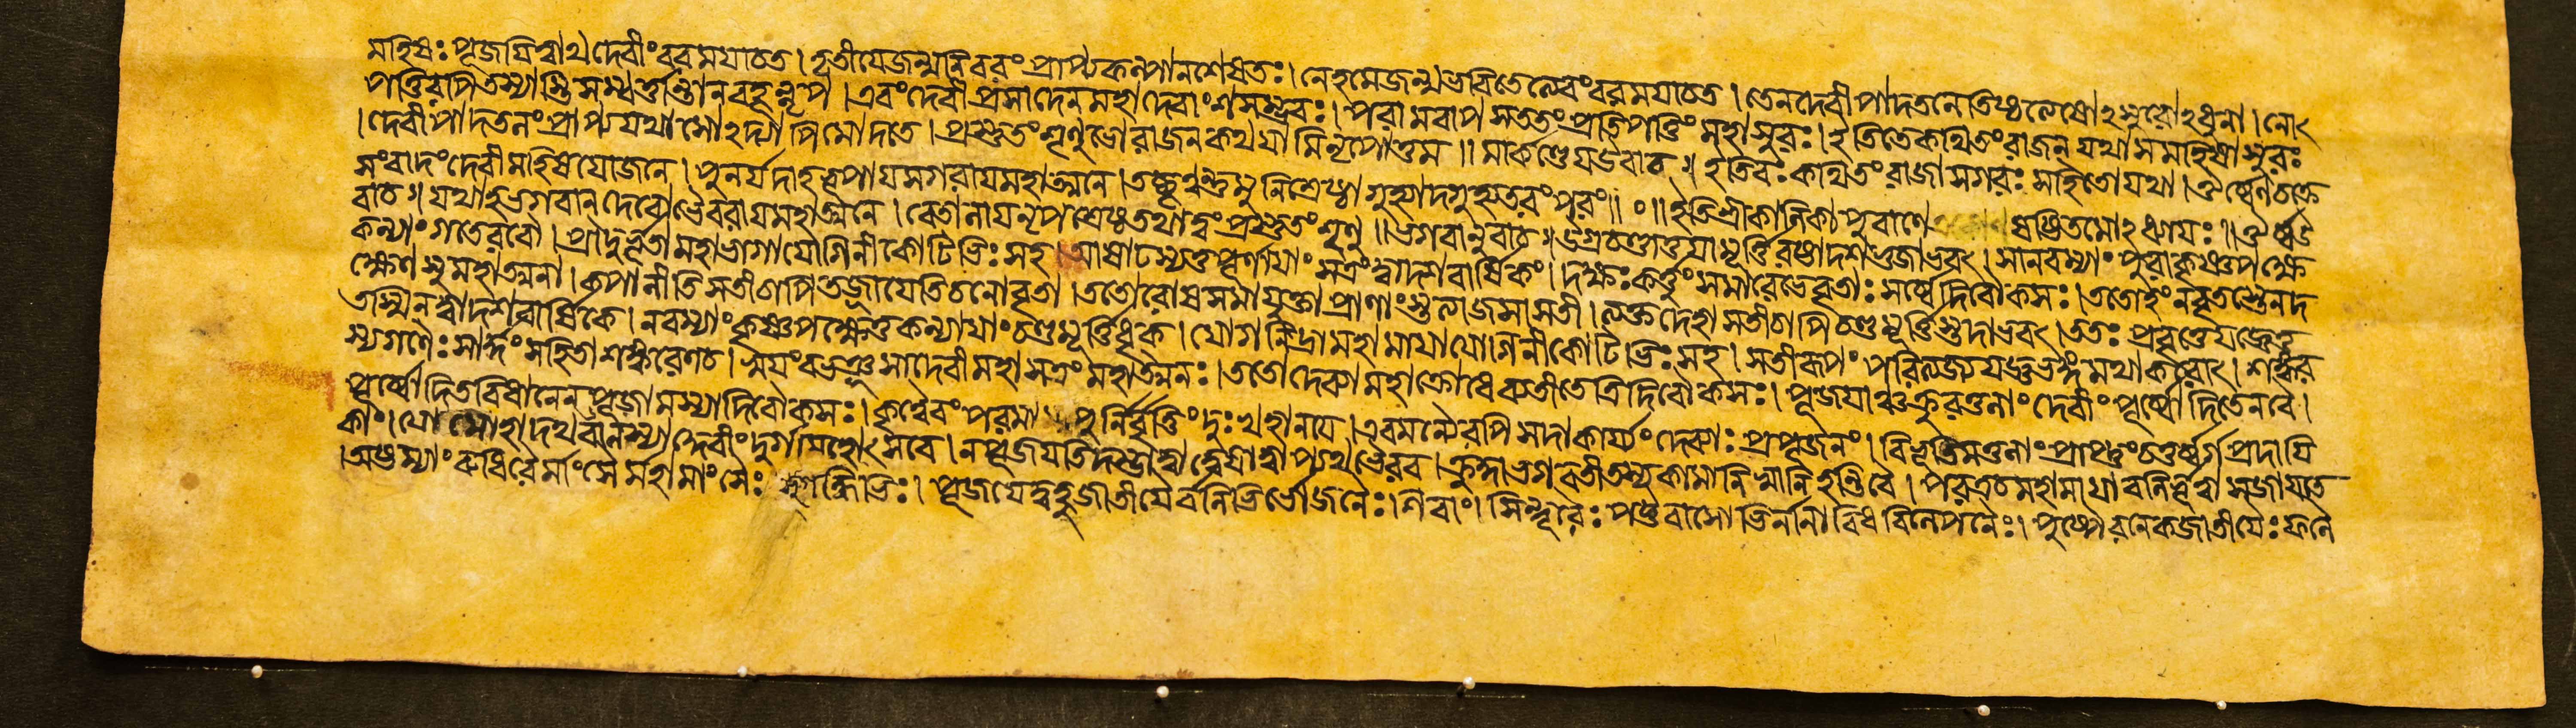 মহিষঃ পূজযিত্বাথ দেবীং বরমযাচত । তৃতীযে জন্মনি বরং প্রাপ্য কল্পানশেষতঃ । নেহ মে জন্ম ভবিতেত্যেবং বরমযাচত । তেন দেবীপাদতলে তিষ্ঠত্যেষোঽসুরোঽধুনা । নোৎ
পত্তিরপি তস্যাস্তি সম্বর্ত্তান্তান বহূন্নৃপ । এবং দেবীপ্রসাদেন মহাদেবাংশসম্ভবঃ । পরামবাপ সততং প্রতিপত্তিং মহাসুরঃ । ইতি তে কথিতং রাজন যথা স মহিষাসুরঃ
। দেবীপাদতলং প্রাপ্য যথা সোঽদ্যাপি মোদতে । প্রস্তুতং শৃণু ভো রাজন কথযামি নৃপোত্তম ॥ মার্কণ্ডেয উবাচ ॥ ইতি বঃ কথিতং রাজা সগরঃ সহিতো যথা । ঔর্ব্বেণ চক্রে
সংবাদং দেবীমহিষযোজনে । পুনর্যদাহ ভূপায সগরায মহাত্মনে । তচ্ছৃণ্বন্তু মুনিশ্রেষ্ঠা গুহ্যাদ্গুহ্যতরং পরং ॥ ০ ॥ ইতি শ্রীকালিকাপুরাণে ষষ্টিতমোঽধ্যাযঃ ॥ ঔর্ব্ব উ
বাচ ॥ যথাহ ভগবান্ দেবো ভৈরবায মহাত্মনে । বেতালায নৃপশ্রেষ্ঠ তথা ত্বং প্রস্তুতং শৃণু ॥ ভগবানুবাচ ॥ উগ্রচণ্ডা তু যা মূর্ত্তিরষ্টাদশভুজাভবৎ । সা নবম্যাং পুরা কৃষ্ণপক্ষে
কন্যাং গতে রবৌ । প্রাদুর্ভূতা মহাভাগা যোগিনীকোটিভিঃ সহ । আষাঢস্য তু পূর্ণাযাং সত্রং দ্বাদশবার্ষিকং । দক্ষঃ কর্ত্তুং সমারেভে বৃতাঃ সর্ব্বে দিবৌকসঃ । ততোহং ন বৃতস্তেন দ
ক্ষেণ সুমহাত্মনা । কপালীতি সতী চাপি তজ্জাযেতি চ নো বৃতা । ততো রোষসমাযুক্তা প্রাণাংস্তত্যাজ সা সতী । ত্যক্তদেহা সতী চাপি চণ্ডমূর্ত্তিস্তদাভবৎ । ততঃ প্রবৃত্তে যজ্ঞে তু
তস্মিন দ্বাদশবার্ষিকে । নবম্যাং কৃষ্ণপক্ষে তু কন্যাযাং চণ্ডমূর্ত্তিধৃক । যোগনিদ্রা মহামাযা যোগিনীকোটিভিঃ সহ । সতীরূপং পরিত্যজ্য যজ্ঞভঙ্গমথাকরোৎ । শঙ্কর
স্য গণৈঃ সার্দ্ধং সহিতা শঙ্করেণ চ । স্বযং বভঞ্জ সা দেবী মহাসত্রং মহাত্মনঃ । ততো দেব্যা মহাক্রোধে ব্যতীতে ত্রিদিবৌকসঃ । পূজযাঞ্চক্রুরতুলাং দেবীং পূর্ব্বোদিতেন বৈ ।
পূর্ব্বোদিতবিধানেন পূজামস্যা দিবৌকসঃ । কৃত্বৈবং পরমামাপুর্নির্বৃতিং দুঃখহানযে । এবমন্যৈরপি সদা কার্য্যং দেব্যাঃ প্রপূজনং । বিভূতিমতুলাং প্রাপ্তুং চতুর্ব্বর্গপ্রদাযি
কাং । যো মোহাদথবালস্যাদ্দেবীং দুর্গাং মহোৎসবে । ন পূজযতি দম্ভাদ্বা দ্বেষাদ্বাপ্যথ ভৈরব । ক্রুদ্ধা ভগবতী তস্য কামানিষ্টান্নিহন্তি বৈ । পরত্র চ মহামাযাবলির্ভূত্বা স জাযতে
। অষ্টম্যাং রুধিরৈর্মাংসৈর্মহামাংসৈঃ সুগন্ধিভিঃ । পূজযেদ্বহুজাতীযৈর্বলিভির্ভোজনৈঃ । শিবাং । সিন্দূরৈঃ পট্টবাসোভির্নানাবিধবিলেপনৈঃ । পুষ্পৈরনেকজাতীযৈঃ ফলৈ